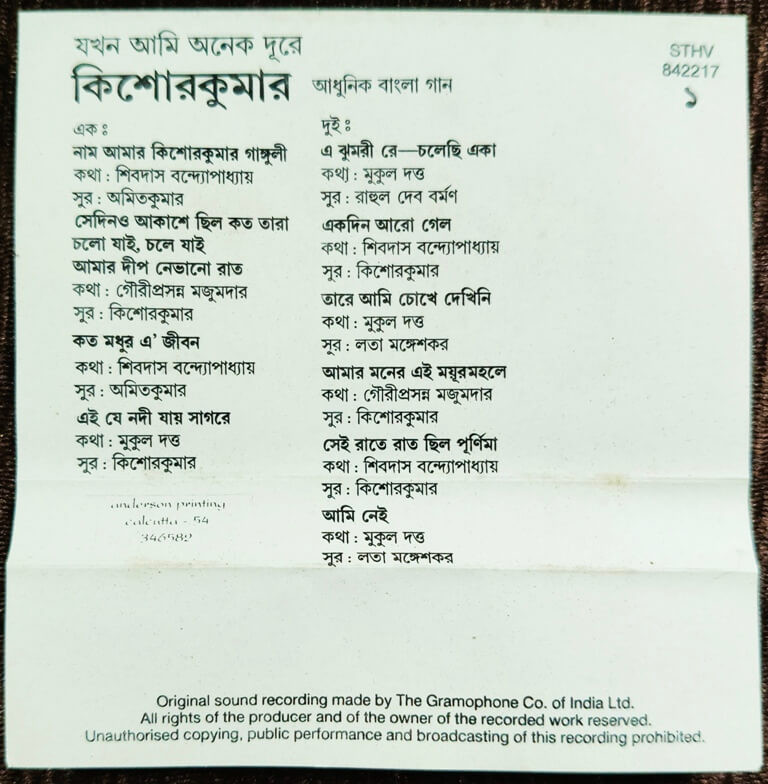 যখন আমি অনেক দূরে
কিশোরকুমার আধুনিক বাংলা গান
STHV
842217
১
এক ঃ
নাম আমার কিশোরকুমার গাঙ্গুলী
কথা : শিবদাস বন্দ্যোপাধ্যায়
সুর : অমিতকুমার
সেদিনও আকাশে ছিল কত তারা
চলো যাই, চলে যাই
আমার দীপ নেভানো রাত
কথা : গৌরীপ্রসন্ন মজুমদার
সুর : কিশোরকুমার
কত মধুর এ' জীবন
কথা : শিবদাস বন্দ্যোপাধ্যায়
সুর : অমিতকুমার
এই যে নদী যায় সাগরে
কথা : মুকুল দত্ত
সুর : কিশোরকুমার
anderson printing
calcutta - 54
346589
দুই ঃ
এ ঝুমরী রে—চলেছি একা
কথা : মুকুল দত্ত
সুর : রাহুল দেব বর্মণ
একদিন আরো গেল
কথা : শিবদাস বন্দ্যোপাধ্যায়
সুর : কিশোরকুমার
তারে আমি চোখে দেখিনি
কথা : মুকুল দত্ত
সুর : লতা মঙ্গেশকর
আমার মনের এই ময়ূরমহলে
কথা : গৌরীপ্রসন্ন মজুমদার
সুর : কিশোরকুমার
সেই রাতে রাত ছিল পূর্ণিমা
কথা : শিবদাস বন্দ্যোপাধ্যায়
সুর : কিশোরকুমার
আমি নেই
কথা : মুকুল দত্ত
সুর : লতা মঙ্গেশকর
Original sound recording made by The Gramophone Co. of India Ltd.
All rights of the producer and of the owner of the recorded work reserved.
Unauthorised copying, public performance and broadcasting of this recording prohibited.